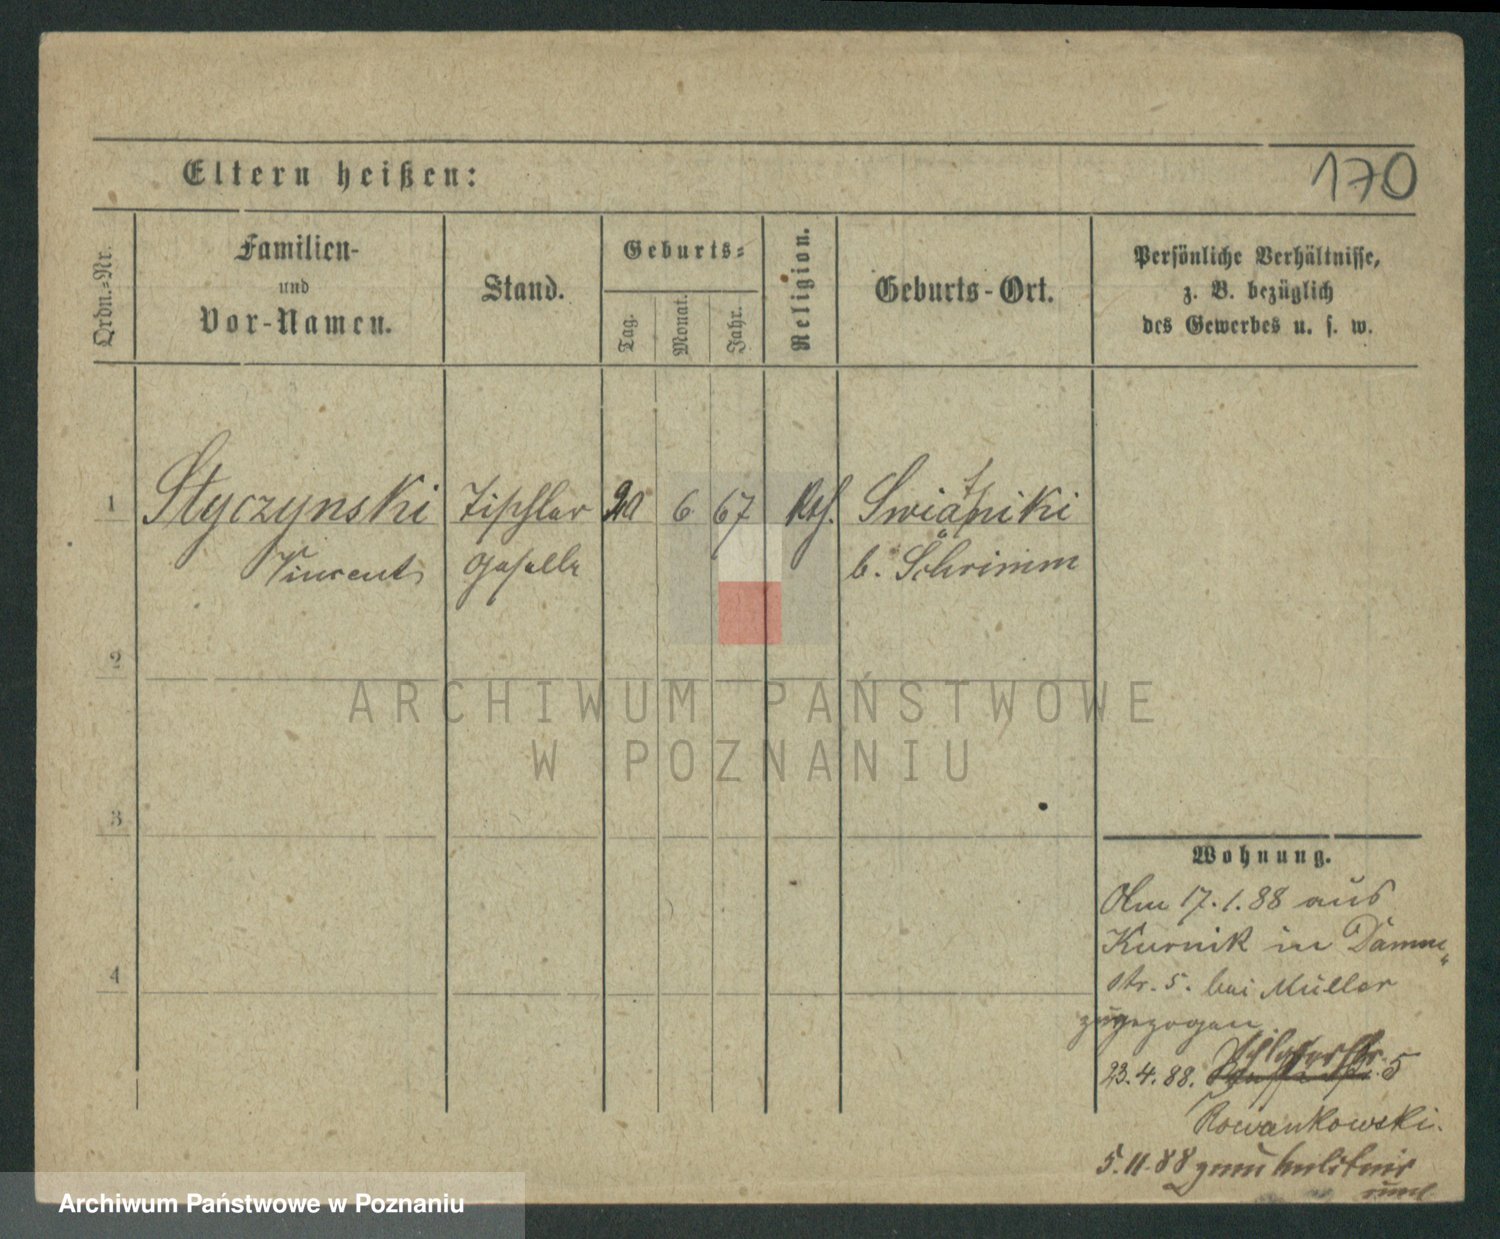 170
Eltern heißen:
Ordn.-Nr.
Familien-
und
Vor-Namen.
Stand.
Geburts-
Tag.
Monat.
Jahr.
Religion.
Geburts-Ort.
Persönliche Verhältnisse,
z. B. bezüglich
des Gewerbes u. s. w.
1 Styczynski Tischler 6 67 Kth. Swiątniki
Vincent Geselle b. Schrimm
2
3
4
Wohnung.
Am 17.1.88 aus
Kurnik in Damm-
str. 5. bei Müller
zugezogen.
23.4.88. 5
5.11.88 zum
ARCHIWUM PAŃSTWOWE
W POZNANIU
Archiwum Państwowe w Poznaniu